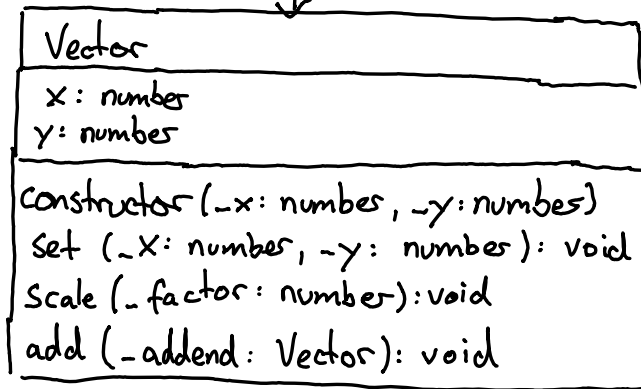 Vector
x: number
y: number
constructor(_x: number, _y: number)
set (_x: number, _y: number): void
scale (_factor: number): void
add (_addend: Vector): void